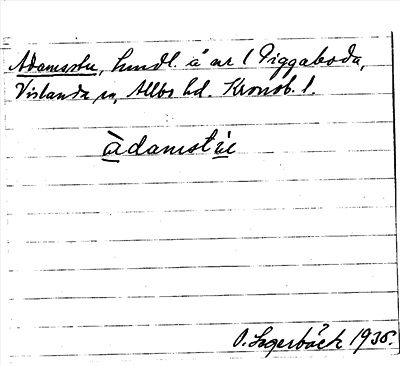 Adamsstu, hmdl. å ar 1 Piggaboda,
Vislanda sn, Allbo hd. Kronob. l.
àdamstú
O. Lagerbäck 1935.